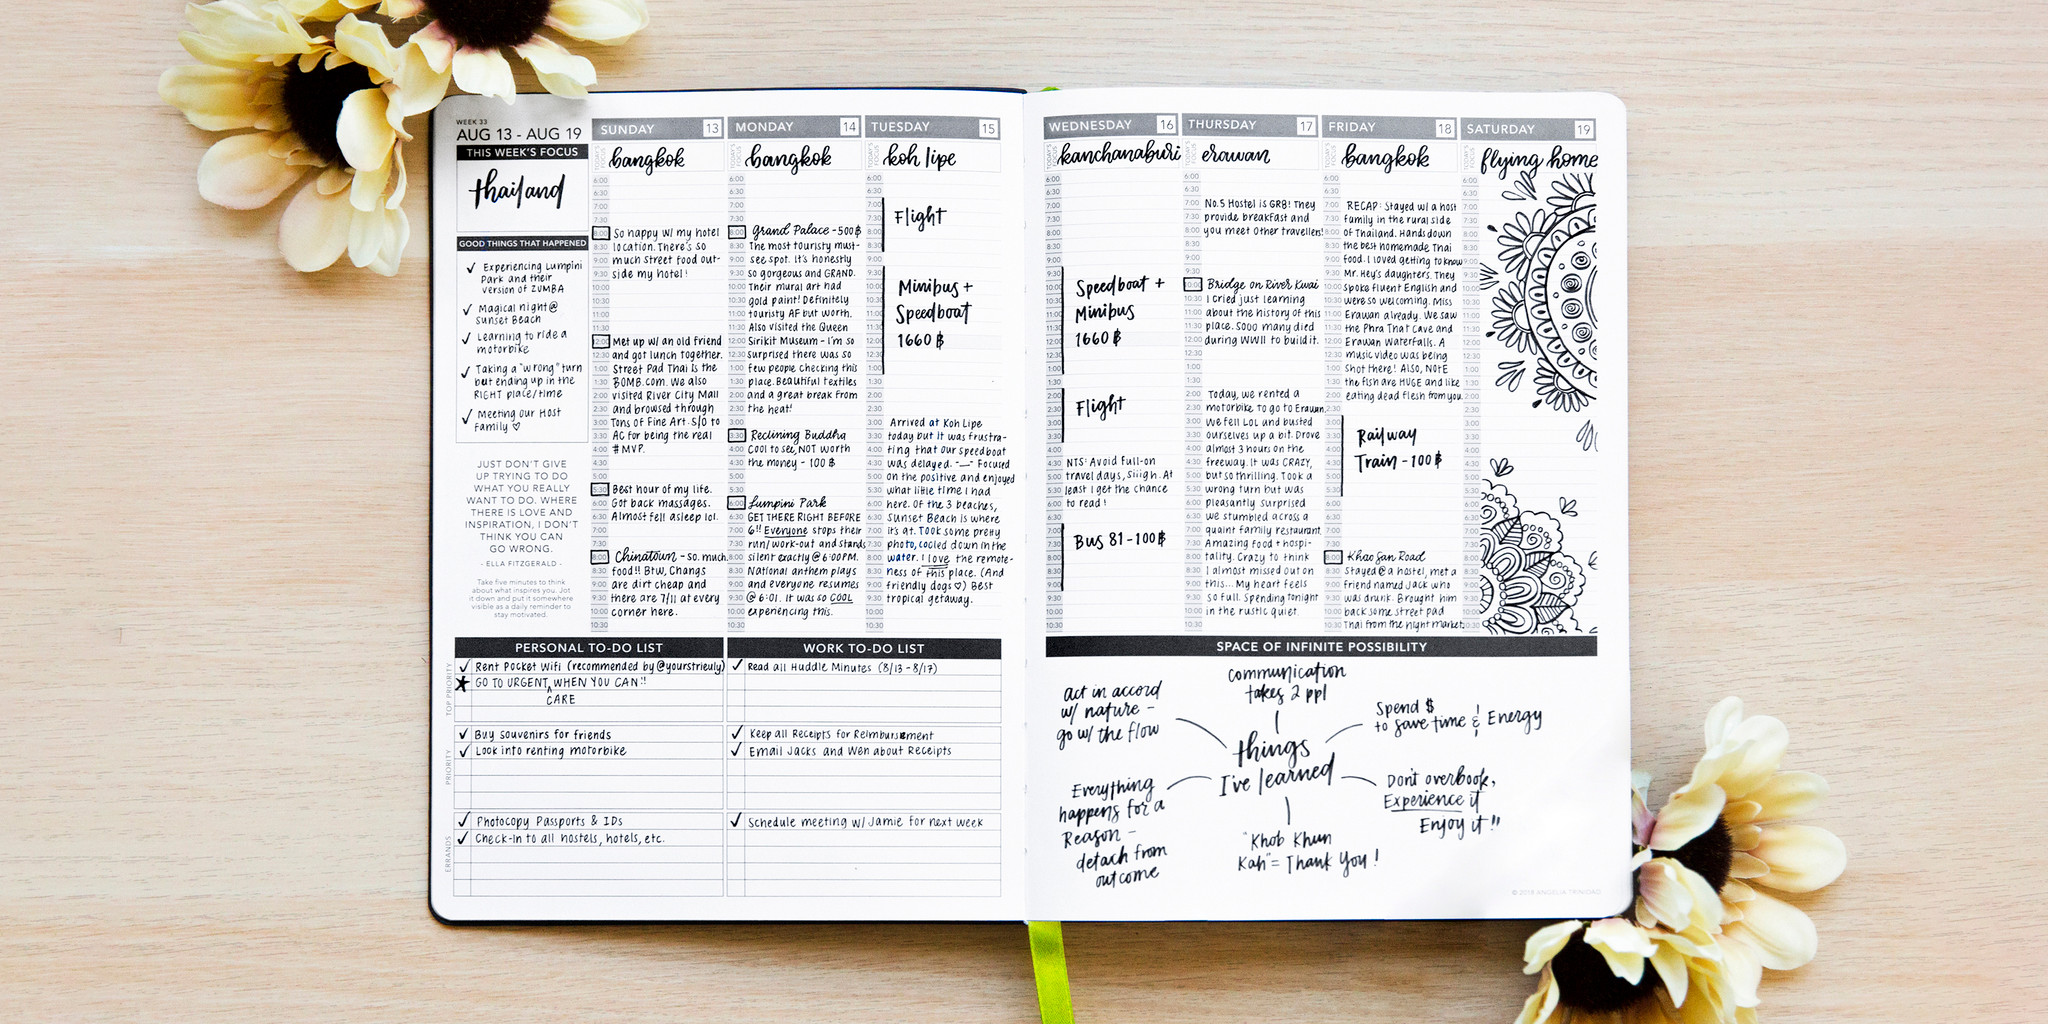 WEEK 33
AUG 13 - AUG 19
THIS WEEK'S FOCUS
thailand
GOOD THINGS THAT HAPPENED
✓ Experiencing Lumpini
Park and their
version of ZUMBA
✓ Magical night @
Sunset Beach
✓ Learning to ride a
motorbike
✓ Taking a "wrong" turn
but ending up in the
RIGHT place/time
✓ Meeting our Host
Family ♡
JUST DON'T GIVE
UP TRYING TO DO
WHAT YOU REALLY
WANT TO DO. WHERE
THERE IS LOVE AND
INSPIRATION, I DON'T
THINK YOU CAN
GO WRONG.
- ELLA FITZGERALD -
Take five minutes to think
about what inspires you. Jot
it down and put it somewhere
visible as a daily reminder to
stay motivated.
SUNDAY 13
TODAY'S FOCUS
bangkok
So happy w/ my hotel
location. There's so
much street food out-
side my hotel!
Met up w/ an old friend
and got lunch together.
Street Pad Thai is the
BOMB.com. We also
visited River City Mall
and browsed through
Tons of Fine Art. S/O to
AC for being the real
#MVP.
Best hour of my life.
Got back massages.
Almost fell asleep lol.
Chinatown - so. much.
food!! Btw, Changs
are dirt cheap and
there are 7/11 at every
corner here.
MONDAY 14
TODAY'S FOCUS
bangkok
Grand Palace - 500฿
The most touristy must-
see spot. It's honestly
so gorgeous and GRAND.
Their mural art had
gold paint! Definitely
touristy AF but worth.
Also visited the Queen
Sirikit Museum - I'm so
surprised there was so
few people checking this
place. Beautiful textiles
and a great break from
the heat!
Reclining Buddha
Cool to see, NOT worth
the money - 100 ฿
Lumpini Park
GET THERE RIGHT BEFORE
6!! Everyone stops their
run/work-out and stands
silent exactly @ 6:00PM.
National anthem plays
and everyone resumes
@ 6:01. It was so COOL
experiencing this.
TUESDAY 15
TODAY'S FOCUS
koh lipe
Flight
Minibus +
Speedboat
1660 ฿
Arrived at Koh Lipe
today but it was frustra-
ting that our speedboat
was delayed. -__- Focused
on the positive and enjoyed
what little time I had
here. Of the 3 beaches,
Sunset Beach is where
it's at. Took some pretty
photo, cooled down in the
water. I love the remote-
ness of this place. (And
friendly dogs ♡) Best
tropical getaway.
PERSONAL TO-DO LIST
TOP PRIORITY
✓ Rent Pocket Wifi (recommended by @yourstrieuly)
★ GO TO URGENT ^ WHEN YOU CAN!!
CARE
PRIORITY
✓ Buy souvenirs for friends
✓ Look into renting motorbike
ERRANDS
✓ Photocopy Passports & IDs
✓ Check-In to all hostels, hotels, etc.
WORK TO-DO LIST
✓ Read all Huddle Minutes (8/13 - 8/17)
✓ Keep all Receipts for Reimbursement
✓ Email Jacks and Wen about Receipts
✓ Schedule meeting w/ Jamie for next week
WEDNESDAY 16
TODAY'S FOCUS
kanchanaburi
Speedboat +
Minibus
1660 ฿
Flight
NTS: Avoid full-on
travel days, Siiigh. At
least I get the chance
to read!
Bus 81 - 100฿
THURSDAY 17
TODAY'S FOCUS
erawan
No.5 Hostel is GR8! They
provide breakfast and
you meet other travellers!
Bridge on River Kwai
I cried just learning
about the history of this
place. Sooo many died
during WWII to build it.
Today, we rented a
motorbike to go to Erawan.
We fell LOL and busted
ourselves up a bit. Drove
almost 3 hours on the
freeway. It was CRAZY,
but so thrilling. Took a
wrong turn but was
pleasantly surprised
we stumbled across a
quaint family restaurant.
Amazing food + hospi-
tality. Crazy to think
I almost missed out on
this... My heart feels
so full. Spending tonight
in the rustic quiet.
FRIDAY 18
TODAY'S FOCUS
bangkok
RECAP: Stayed w/ a host
family in the rural side
of Thailand. Hands down
the best homemade Thai
food. I loved getting to know
Mr. Hey's daughters. They
spoke fluent English and
were so welcoming. Miss
Erawan already. We saw
the Phra That Cave and
Erawan Waterfalls. A
music video was being
shot there! ALSO, NOTE
the fish are HUGE and like
eating dead flesh from you.
Railway
Train - 100 ฿
Khao San Road
Stayed @ a hostel, met a
friend named Jack who
was drunk. Brought him
back some street pad
Thai from the night market.
SATURDAY 19
TODAY'S FOCUS
flying home
SPACE OF INFINITE POSSIBILITY
things
I've learned
communication
takes 2 ppl
Spend $
to save time & Energy
Don't overbook,
Experience it
Enjoy it!!
"Khob Khun
Kah" = Thank You!
Everything
happens for a
Reason -
detach from
outcome
act in accord
w/ nature -
go w/ the flow
© 2018 ANGELIA TRINIDAD